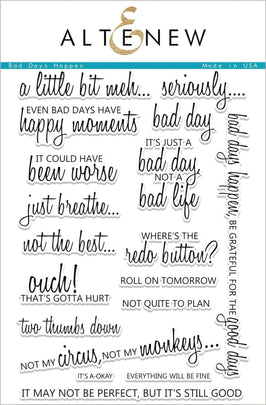 ALTENEW
Bad Days Happen
Made in USA
a little bit meh...
seriously....
EVEN BAD DAYS HAVE
happy moments
bad day
IT COULD HAVE
been worse
IT'S JUST A
bad day,
NOT A
bad life
just breathe...
not the best...
WHERE'S THE
redo button?
bad days happen, BE GRATEFUL FOR THE good days
ouch!
THAT'S GOTTA HURT
ROLL ON TOMORROW
NOT QUITE TO PLAN
two thumbs down
NOT MY circus, NOT MY monkeys...
IT'S A-OKAY
EVERYTHING WILL BE FINE
IT MAY NOT BE PERFECT, BUT IT'S STILL GOOD